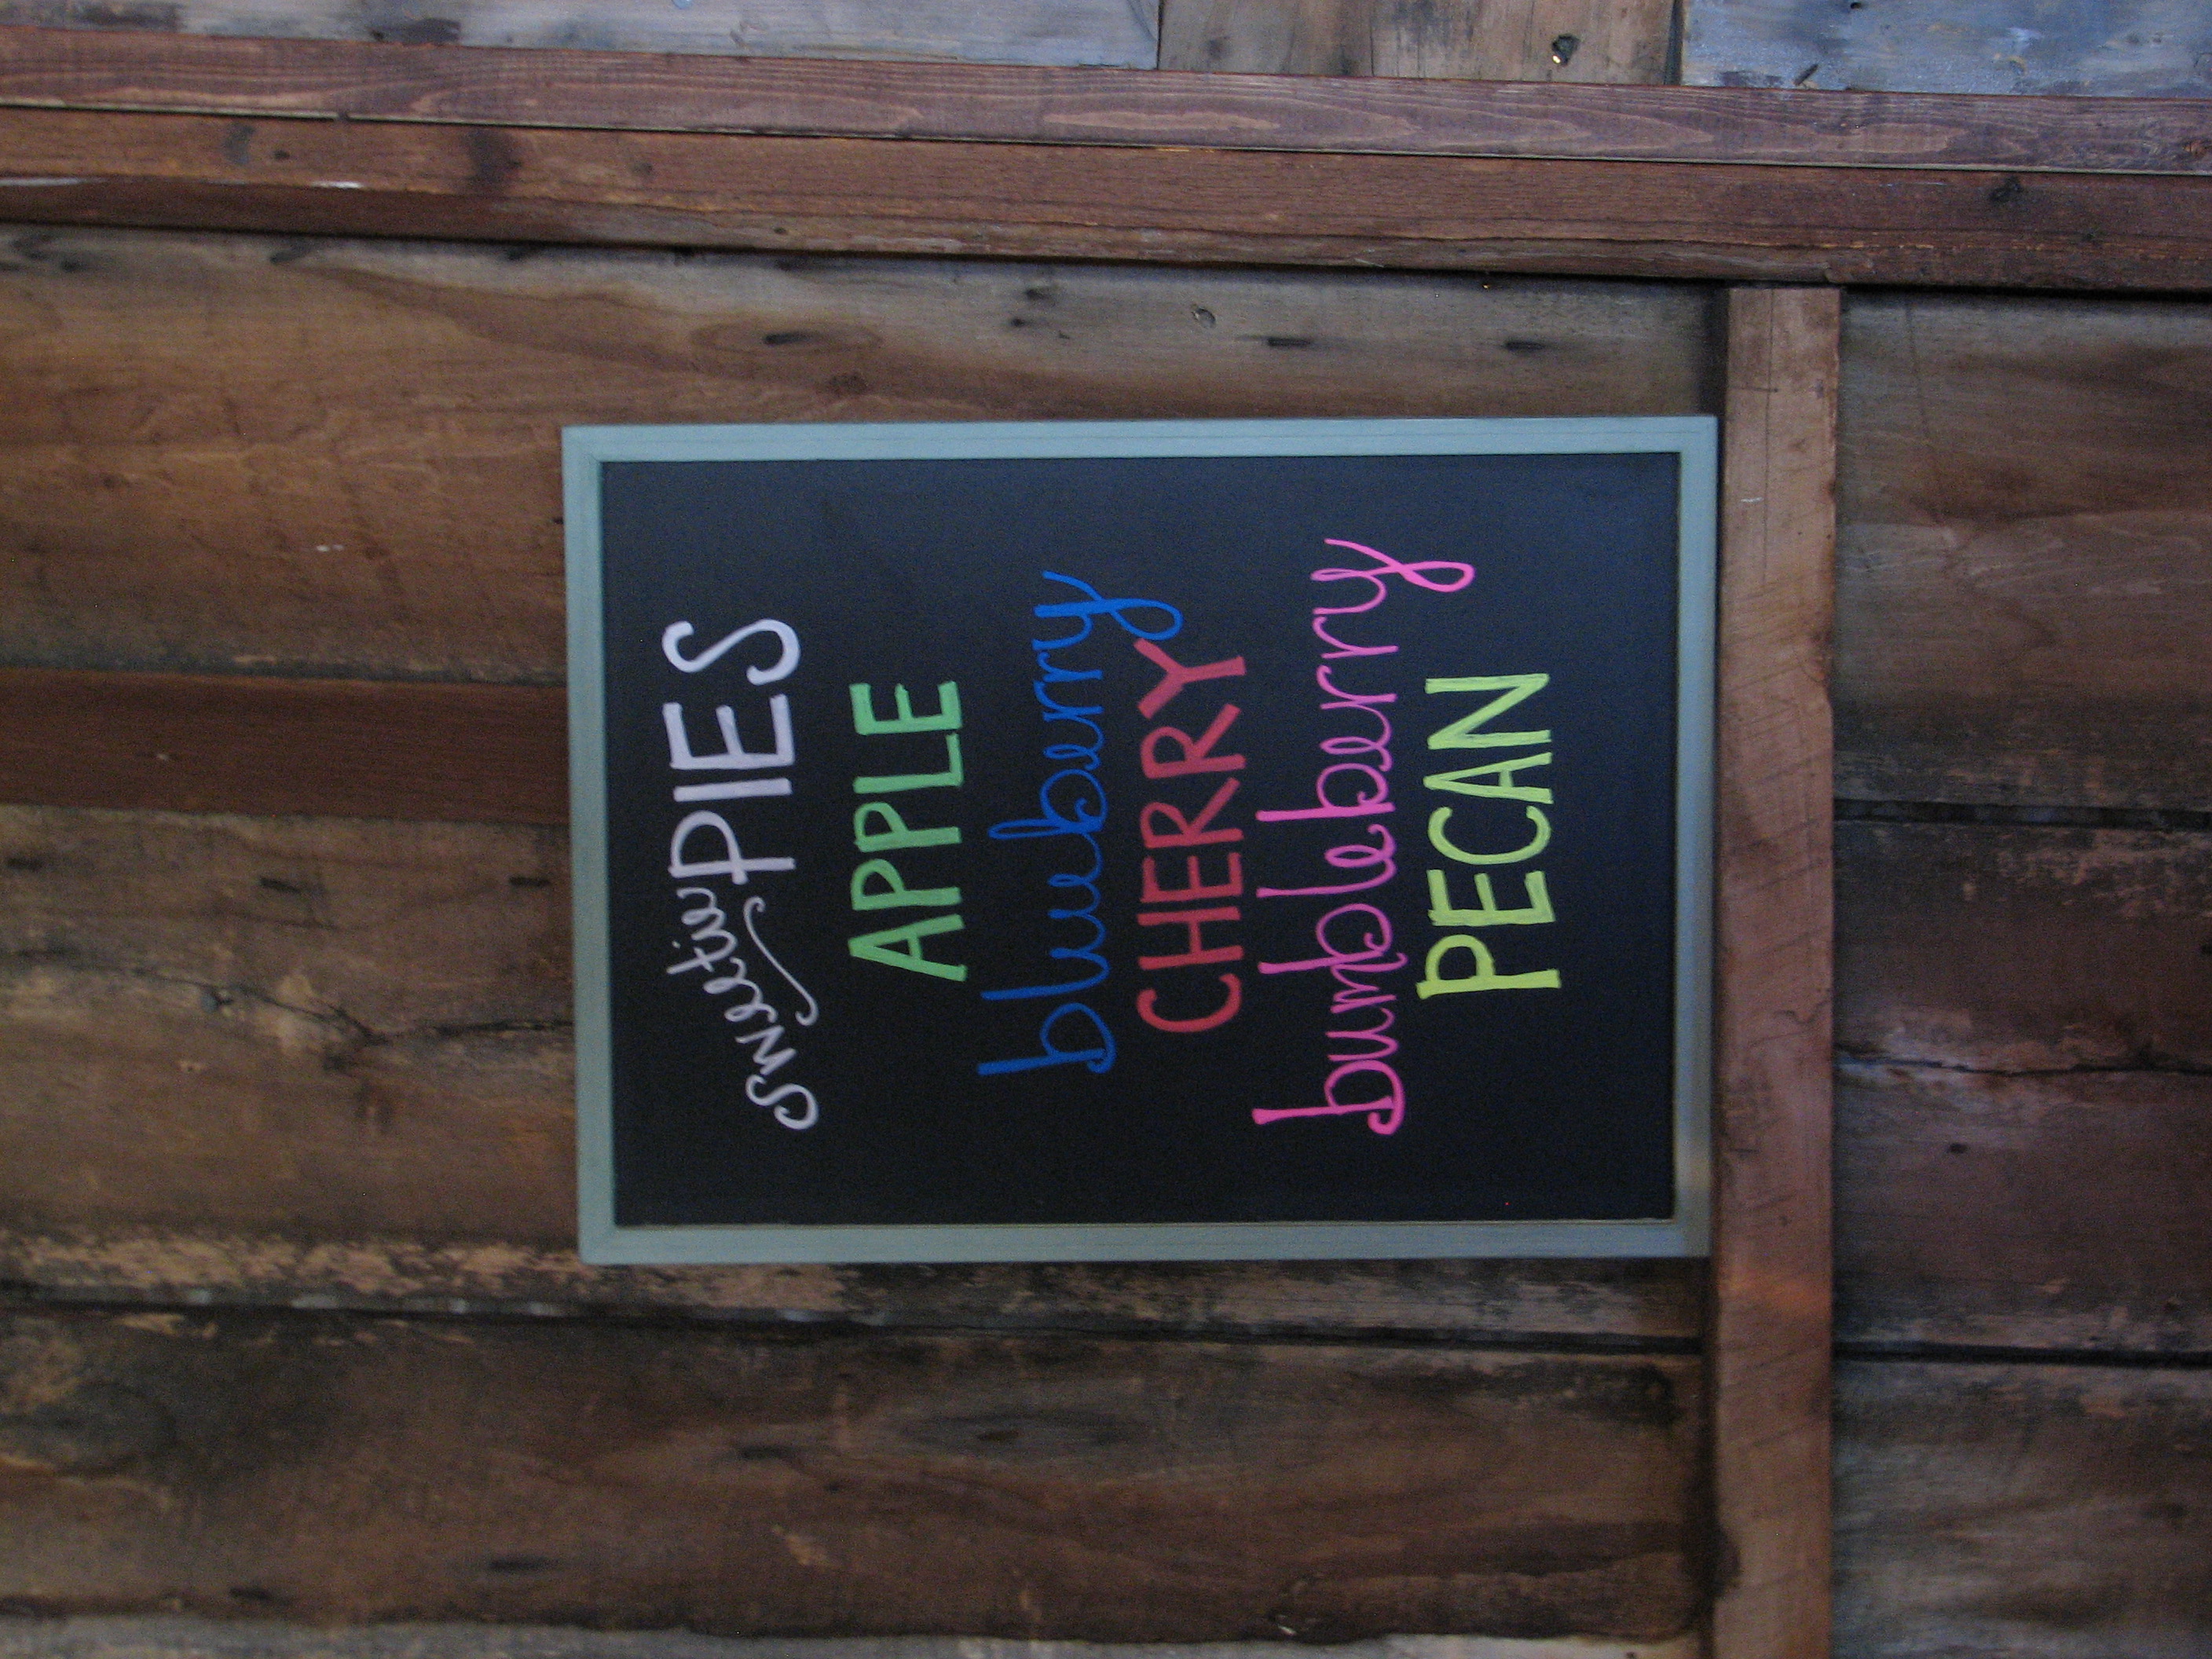 sweetie PIES
APPLE
blueberry
CHERRY
bumbleberry
PECAN